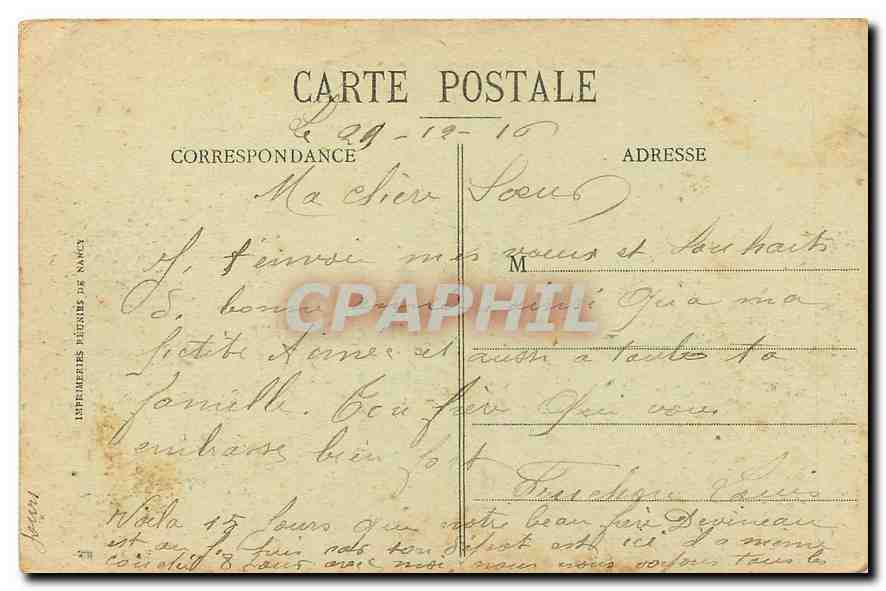 CARTE POSTALE
Le 29-12-16
CORRESPONDANCE
ADRESSE
Ma chère Sœur
J. t'envoie mes vœux et Souhaits
M
d. bonne année ainsi qu'a ma
CPAPHIL
petite Aimée et aussi a toute ta
famille. Ton frère qui vous
embrasse bien fort
Louis
Voila 15 Jours que notre beau frère Devineau
est au son dépot est ici il a meme
8 Jours avec moi nous nous voyons tous les
Jours
IMPRIMERIES REUNIES DE NANCY